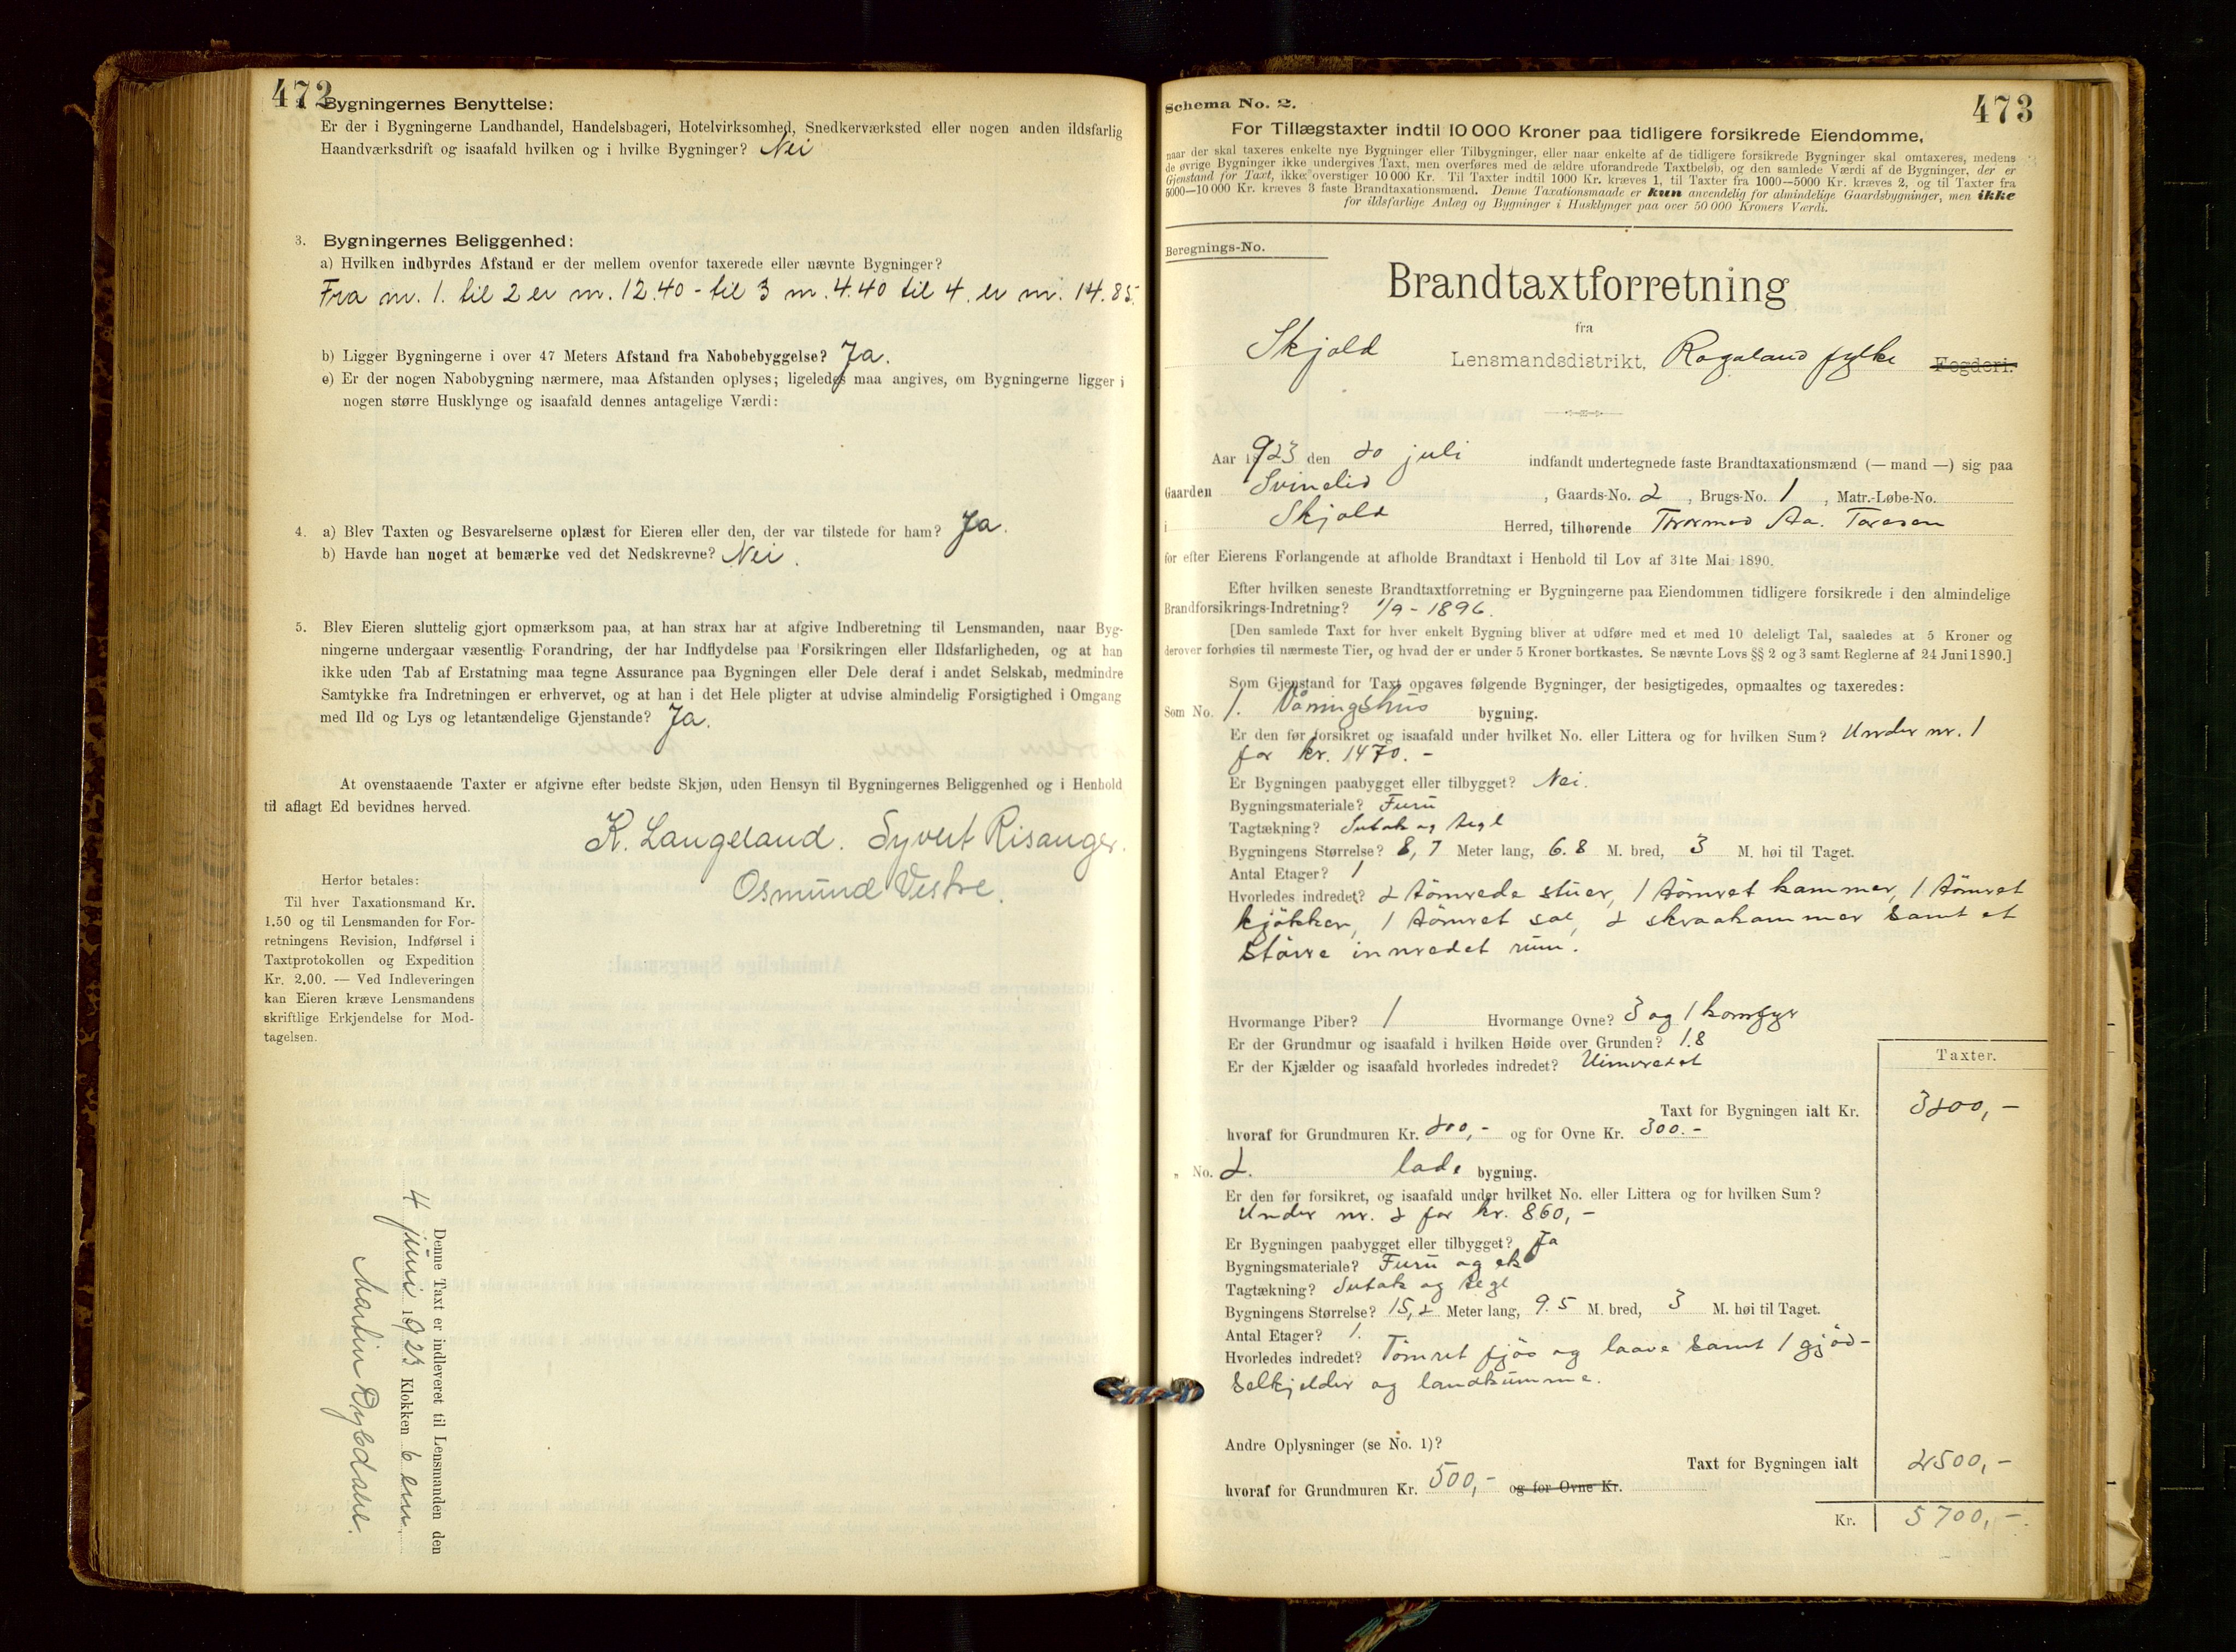 472
2. Bygningernes Benyttelse:
Er der i Bygningerne Landhandel, Handelsbageri, Hotelvirksomhed, Snedkerværksted eller nogen anden ildsfarlig
Haandværksdrift og isaafald hvilken og i hvilke Bygninger? Nei
3. Bygningernes Beliggenhed:
a) Hvilken indbyrdes Afstand er der mellem ovenfor taxerede eller nævnte Bygninger?
Fra nr. 1. til 2 er m. 12.40 - til 3 m. 4.40 til 4. er m. 14.85.
b) Ligger Bygningerne i over 47 Meters Afstand fra Nabobebyggelse? Ja.
c) Er der nogen Nabobygning nærmere, maa Afstanden oplyses; ligeledes maa angives, om Bygningerne ligger i
nogen større Husklynge og isaafald dennes antagelige Værdi:
4. a) Blev Taxten og Besvarelserne oplæst for Eieren eller den, der var tilstede for ham? Ja.
b) Havde han noget at bemærke ved det Nedskrevne? Nei.
5. Blev Eieren sluttelig gjort opmærksom paa, at han strax har at afgive Indberetning til Lensmanden, naar Byg-
ningerne undergaar væsentlig Forandring, der har Indflydelse paa Forsikringen eller Ildsfarligheden, og at han
ikke uden Tab af Erstatning maa tegne Assurance paa Bygningen eller Dele deraf i andet Selskab, medmindre
Samtykke fra Indretningen er erhvervet, og at han i det Hele pligter at udvise almindelig Forsigtighed i Omgang
med Ild og Lys og letantændelige Gjenstande? Ja.
At ovenstaaende Taxter er afgivne efter bedste Skjøn, uden Hensyn til Bygningernes Beliggenhed og i Henhold
til aflagt Ed bevidnes herved.
K. Langeland. Syvert Risanger.
Osmund Vestre.
Herfor betales:
Til hver Taxationsmand Kr.
1.50 og til Lensmanden for For-
retningens Revision, Indførsel i
Taxtprotokollen og Expedition
Kr. 2.00. — Ved Indleveringen
kan Eieren kræve Lensmandens
skriftlige Erkjendelse for Mod-
tagelsen.
Denne Taxt er indleveret til Lensmanden den
4 juni 1923 Klokken 6 em.
Martin Dybdahl.
Schema No. 2.
473
For Tillægstaxter indtil 10 000 Kroner paa tidligere forsikrede Eiendomme,
naar der skal taxeres enkelte nye Bygninger eller Tilbygninger, eller naar enkelte af de tidligere forsikrede Bygninger skal omtaxeres, medens
de øvrige Bygninger ikke undergives Taxt, men overføres med de ældre uforandrede Taxtbeløb, og den samlede Værdi af de Bygninger, der er
Gjenstand for Taxt, ikke overstiger 10 000 Kr. Til Taxter indtil 1000 Kr. kræves 1, til Taxter fra 1000—5000 Kr. kræves 2, og til Taxter fra
5000—10 000 Kr. kræves 3 faste Brandtaxationsmænd. Denne Taxationsmaade er kun anvendelig for almindelige Gaardsbygninger, men ikke
for ildsfarlige Anlæg og Bygninger i Husklynger paa over 50 000 Kroners Værdi.
Beregnings-No.
Brandtaxtforretning
fra
Skjold Lensmandsdistrikt, Rogaland fylke Fogderi.
Aar 1923 den 20 juli indfandt undertegnede faste Brandtaxationsmænd (— mand —) sig paa
Gaarden Svinelid, Gaards-No. 2, Brugs-No. 1, Matr.-Løbe-No.
i Skjold Herred, tilhørende Tormod Aa. Toresen
for efter Eierens Forlangende at afholde Brandtaxt i Henhold til Lov af 31te Mai 1890.
Efter hvilken seneste Brandtaxtforretning er Bygningerne paa Eiendommen tidligere forsikrede i den almindelige
Brandforsikrings-Indretning? 1/9 - 1896.
[Den samlede Taxt for hver enkelt Bygning bliver at udføre med et med 10 deleligt Tal, saaledes at 5 Kroner og
derover forhøies til nærmeste Tier, og hvad der er under 5 Kroner bortkastes. Se nævnte Lovs §§ 2 og 3 samt Reglerne af 24 Juni 1890.]
Som Gjenstand for Taxt opgaves følgende Bygninger, der besigtigedes, opmaaltes og taxeredes:
Som No. 1. Våningshus bygning.
Er den før forsikret og isaafald under hvilket No. eller Littera og for hvilken Sum? Under nr. 1
for kr. 1470. -
Er Bygningen paabygget eller tilbygget? Nei.
Bygningsmateriale? Furu
Tagtækning? Sutak og tegl
Bygningens Størrelse? 8,7 Meter lang, 6.8 M. bred, 3 M. høi til Taget.
Antal Etager? 1
Hvorledes indredet? 2 tömrede stuer, 1 tömret kammer, 1 tömret
kjökken, 1 tömret sal, 2 skraakammer samt et
större innredet rum.
Hvormange Piber? 1 Hvormange Ovne? 3 og 1 komfyr
Er der Grundmur og isaafald i hvilken Høide over Grunden? 1.8
Er der Kjælder og isaafald hvorledes indredet? Uinnredet
Taxter.
Taxt for Bygningen ialt Kr. 3200,-
hvoraf for Grundmuren Kr. 200,- og for Ovne Kr. 300.-
" No. 2. lade bygning.
Er den før forsikret, og isaafald under hvilket No. eller Littera og for hvilken Sum?
Under nr. 2 for kr. 860,-
Er Bygningen paabygget eller tilbygget? Ja
Bygningsmateriale? Furu og ek
Tagtækning? Sutak og tegl
Bygningens Størrelse? 15,2 Meter lang, 9.5 M. bred, 3 M. høi til Taget.
Antal Etager? 1.
Hvorledes indredet? Tömret fjös og laave samt 1 gjöd-
selkjelder og landkumme.
Andre Oplysninger (se No. 1)?
Taxt for Bygningen ialt 2500,-
hvoraf for Grundmuren Kr. 500,- og for Ovne Kr.
Kr. 5700,-